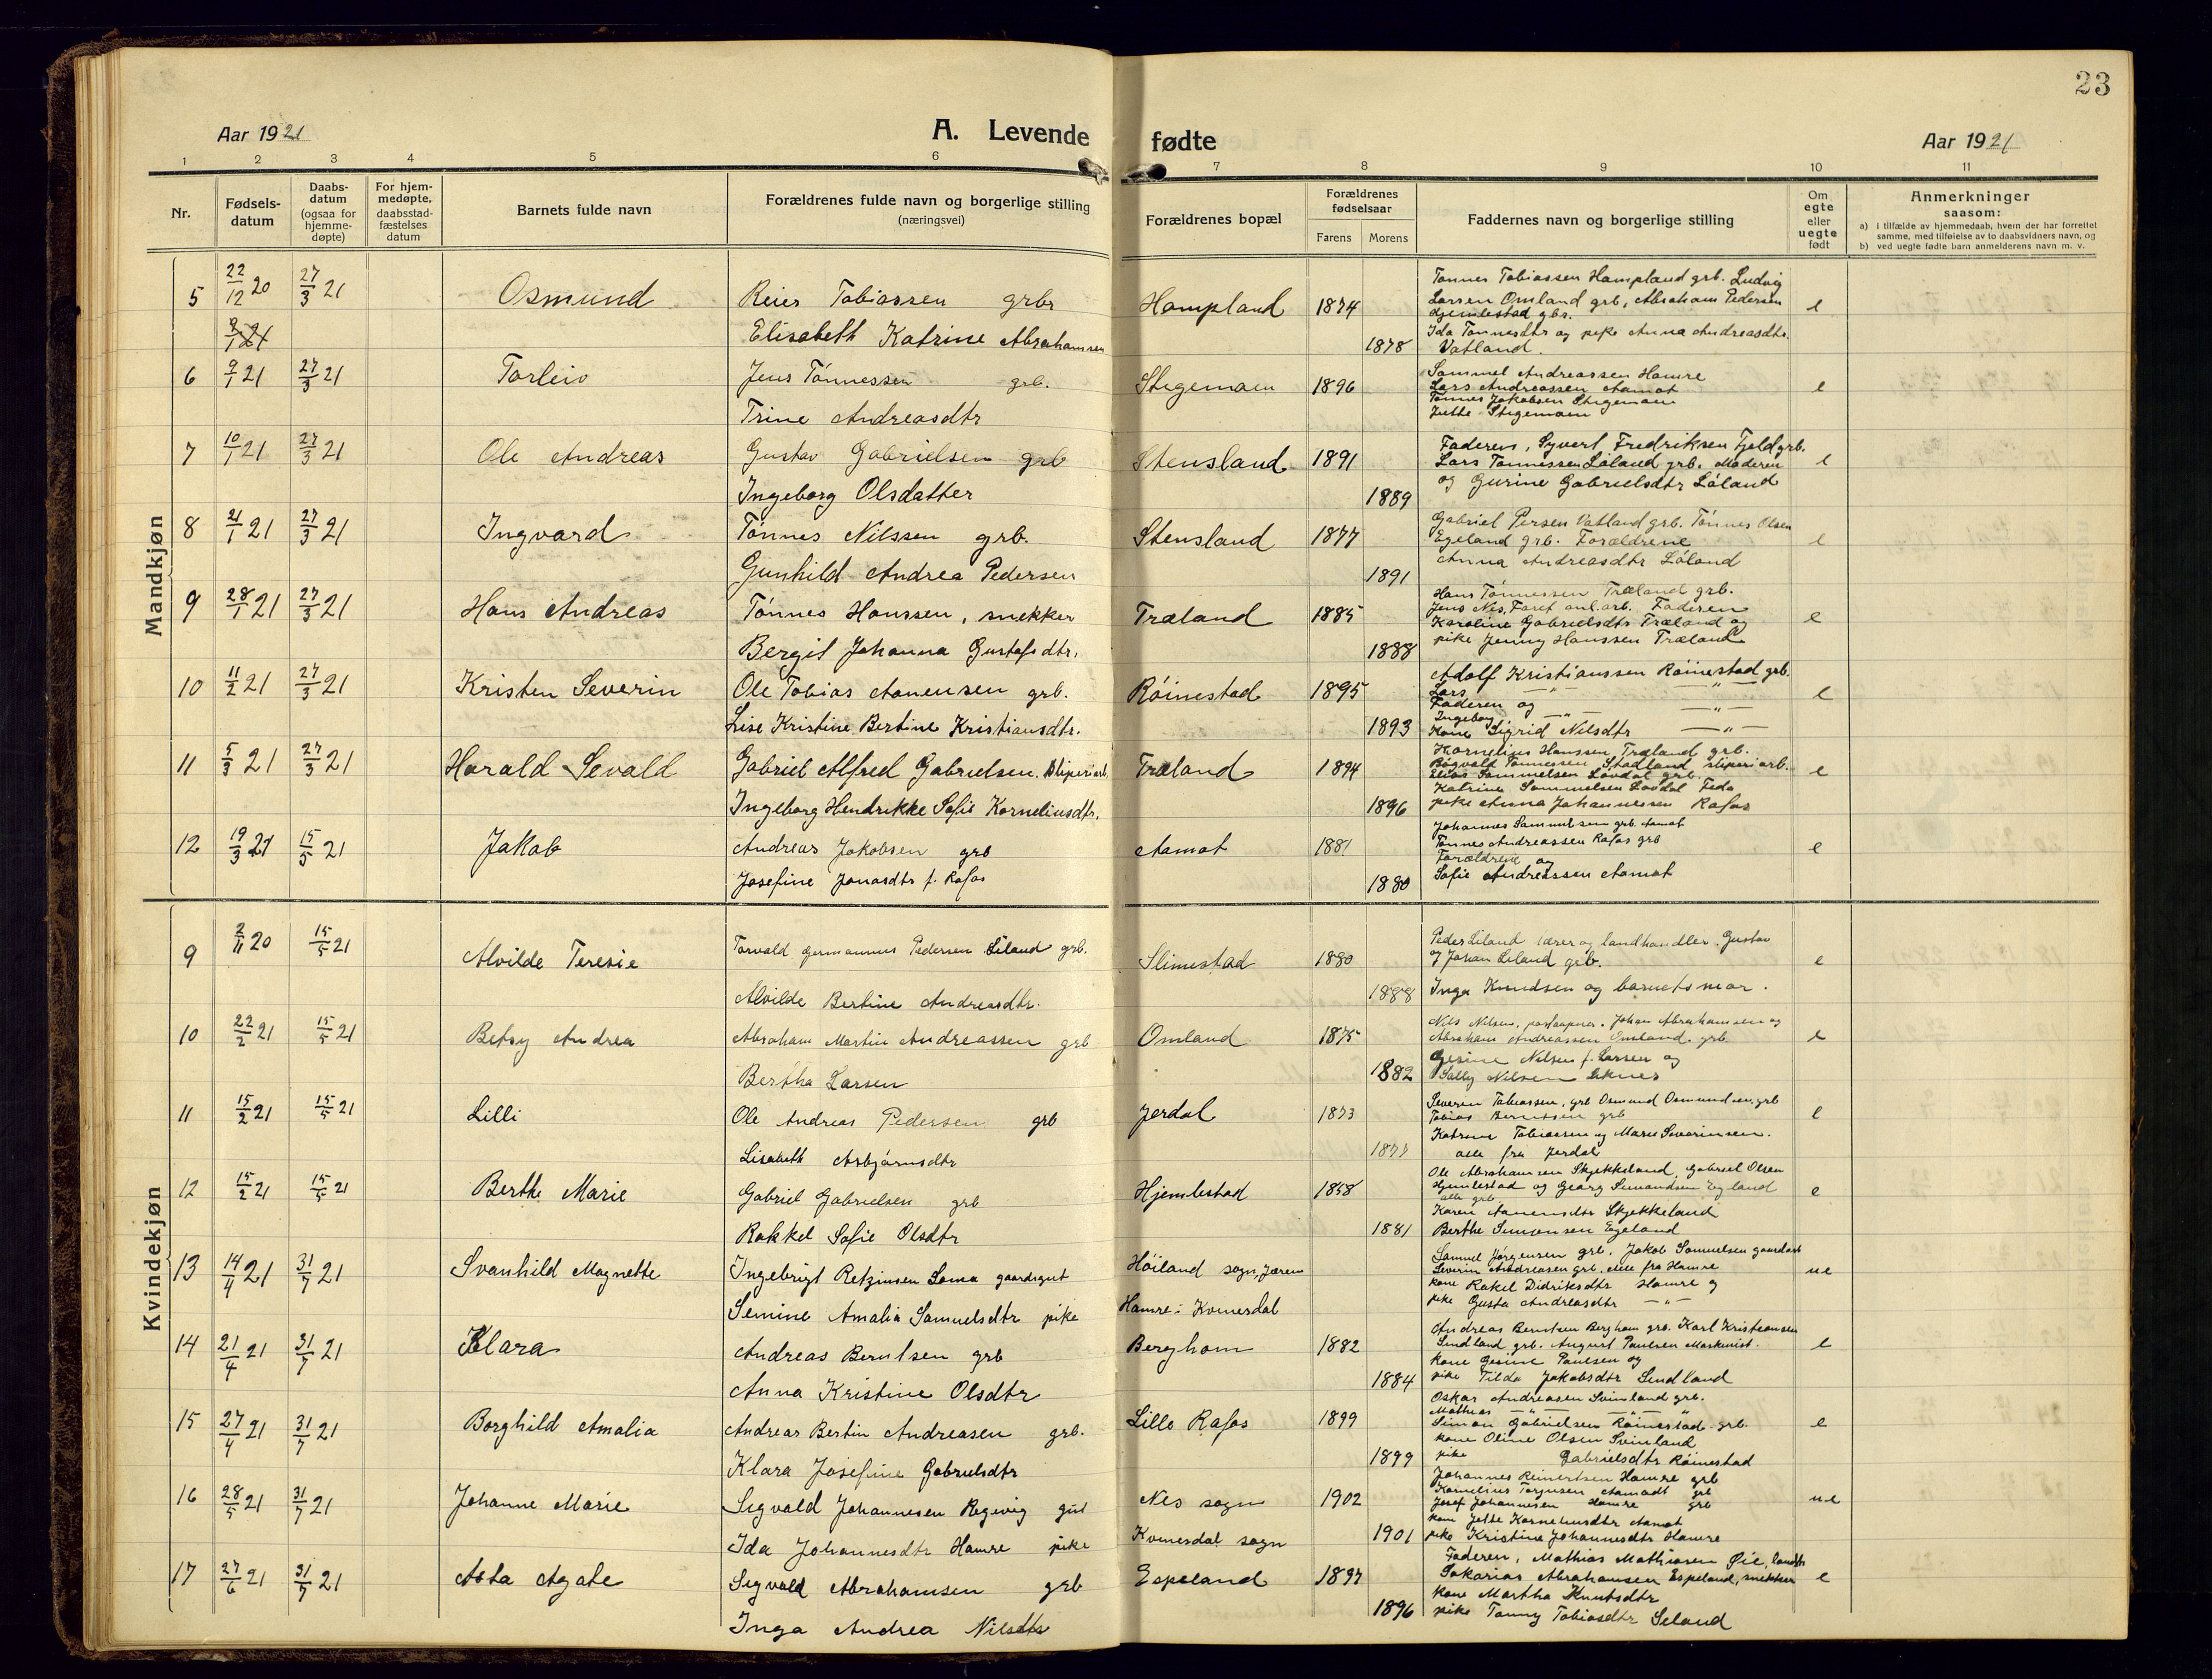 23
Aar 1921
A. Levende
fødte
Aar 1921
1 2 3 4 5 6 7 8 9 10 11
Nr.
Fødsels-
datum
Daabs-
datum
(ogsaa for
hjemme-
døpte)
For hjem-
medøpte,
daabsstad-
fæstelses
datum
Barnets fulde navn
Forældrenes fulde navn og borgerlige stilling
(næringsvei)
Forældrenes bopæl
Forældrenes
fødselsaar
Farens Morens
Faddernes navn og borgerlige stilling
Om
egte
eller
uegte
født
Anmerkninger
saasom:
a) i tilfælde av hjemmedaab, hvem der har forrettet
samme, med tilføielse av to daabsvidners navn, og
b) ved uegte fødte barn anmelderens navn m. v.
Mandkjøn
5 22/12 20 27/3 21 Osmund Reier Tobiassen grbr Hampland 1874 e
9/1 21 Elisabeth Katrine Abrahamsen 1878
Tønnes Tobiassen Hampland grb. Ludvig
Larsen Omland grb, Abraham Pedersen
Hjemlestad gbr.
Ida Tønnesdtr og pike Anna Andreasdtr.
Vatland.
6 9/1 21 27/3 21 Torleiv Jens Tönnessen grb. Stegemoen 1896 e
Trine Andreasdtr
Sammel Andreassen Hamre
Lars Andreassen Aamot
Tønnes Jakobsen Stegemoen
Jutte Stegemoen
7 10/1 21 27/3 21 Ole Andreas Gustav Gabrielsen grb Stensland 1891 e
Ingeborg Olsdatter 1889
Faderen, Syvert Fredriksen Fjeld grb.
Lars Tønnessen Löland grb. Moderen
og Gurine Gabrielsdtr Löland
8 21/1 21 27/3 21 Ingvard Tönnes Nilssen grb. Stensland 1877 e
Gunhild Andrea Pedersen 1891
Gabriel Persen Vatland grb. Tønnes Olsen
Egeland grb. Forældrene
Anna Andreasdtr Löland
9 28/1 21 27/3 21 Hans Andreas Tönnes Hanssen, snekker Træland 1885 e
Bergit Johanna Gustafsdtr. 1888
Hans Tönnessen Træland grb.
Jens Nes, Faret anl. arb. Faderen
Karoline Gabrielsdtr Træland og
pike Jenny Hanssen Træland
10 11/2 21 27/3 21 Kristen Severin Ole Tobias Aanensen grb. Röinestad 1895 e
Lise Kristine Bertine Kristiansdtr. 1893
Adolf Kristianssen Röinestad grb.
Lars — " — — " —
Faderen og
Ingeborg — " — — " —
Kone Sigrid Nilsdtr — " —
11 5/3 21 27/3 21 Harald Sevald Gabriel Alfred Gabrielsen, sliperiarb. Træland 1894 e
Ingeborg Hendrikke Sofie Korneliusdtr. 1896
Kornelius Hanssen Træland grb.
Sigvald Tønnessen Stadland sliperiarb.
Elias Sammelsen Lovdal grb.
Katrine Sammelsen Lovdal Feda
pike Anna Johannessen Rafos
12 19/3 21 15/5 21 Jakob Andreas Jakobsen grb Aamot 1881 e
Josefine Jonasdtr f. Rafos 1880
Johannes Samuelsen grb. Aamot
Tønnes Andreassen Rafos grb
Forældrene og
Sofie Andreassen Aamot
Kvindekjøn
9 2/11 20 15/5 21 Alvilde Teresie Torvald Germannus Pedersen Liland grb. Slimestad 1880 e
Alvilde Bertine Andreasdtr. 1888
Peder Liland lærer og landhandler. Gustav
og Johan Liland grb.
Inga Knudsen og barnets mor.
10 22/2 21 15/5 21 Betsy Andrea Abraham Martin Andreassen grb Omland 1875 e
Bertha Larsen 1882
Nils Nilsen, postaapner. Johan Abrahamsen og
Abraham Andreassen Omland. grb
Gesine Nilsen f. Larsen og
Sally Nilsen Liknes
11 15/2 21 15/5 21 Lilli Ole Andreas Pedersen grb Jerdal 1873 e
Lisabeth Asbjörnsdtr
Severin Tobiassen, grb Osmund Osmundsen, grb
Tobias Berntsen grb
Katrine Tobiassen og Marie Severinsen.
alle fra Jerdal
12 15/2 21 15/5 21 Berthe Marie Gabriel Gabrielsen grb Hjemlestad 1858 e
Rakkel Sofie Olsdtr 1881
Ole Abrahamsen Skjekkeland, Gabriel Olsen
Hjemlestad og Georg Simondsen Egeland
alle grb
Karen Aanensdtr Skjekkeland
Berthe Simonsen Egeland
13 14/4 21 31/7 21 Svanhild Magnette Ingebrigt Retzinsen Soma gaardsgut Höiland sogn, Jæren ue
Semine Amalia Samuelsdtr pike Hamre i Kvinesdal
Samuel Jörgensen grb. Jakob Samuelsen gaardarb
Severin Andreasen grb. alle fra Hamre
kone Rakel Didriksdtr Hamre og
pike Gusta Andreasdtr — " —
14 21/4 21 31/7 21 Klara Andreas Berntsen grb Berghom 1882 e
Anna Kristine Olsdtr 1884
Andreas Berntsen Berghom grb. Karl Kristiansen
Sindland grb. August Paulsen Maskinist.
kone Gesine Paulsen og
pike Tilda Jakobsdtr Sindland
15 27/4 21 31/7 21 Borghild Amalia Andreas Bertin Andreasen grb. Lille Rafos 1899 e
Klara Josefine Gabrielsdtr 1899
Oskar Andreasen Svinland grb.
Mathias — " — — " — "
Simon Gabrielsen Röinestad. grb.
kone Oline Olsen Svinland
pike Gabrielsdtr Röinestad
16 28/5 21 31/7 21 Johanne Marie Sigvald Johannesen Regevig gut Nes sogn 1902 ue
Ida Johannesdtr Hamre pike Kvinesdal sogn 1901
Johannes Reinertsen Hamre grb
Kornelius Torjusen Aamodt grb
Josef Johannesen Hamre grb
kone Jette Korneliusdtr Aamot
pike Kristine Johannesdtr Hamre
17 27/6 21 31/7 21 Asta Agate Sigvald Abrahamsen grb Espeland 1897 e
Inga Andrea Nilsdtr 1896
Faderen, Mathias Mathiasen Øie, landh
Sakarias Abrahamsen Espeland, snekker
kone Martha Knutsdtr
pike Tomy Tobiasdtr Seland